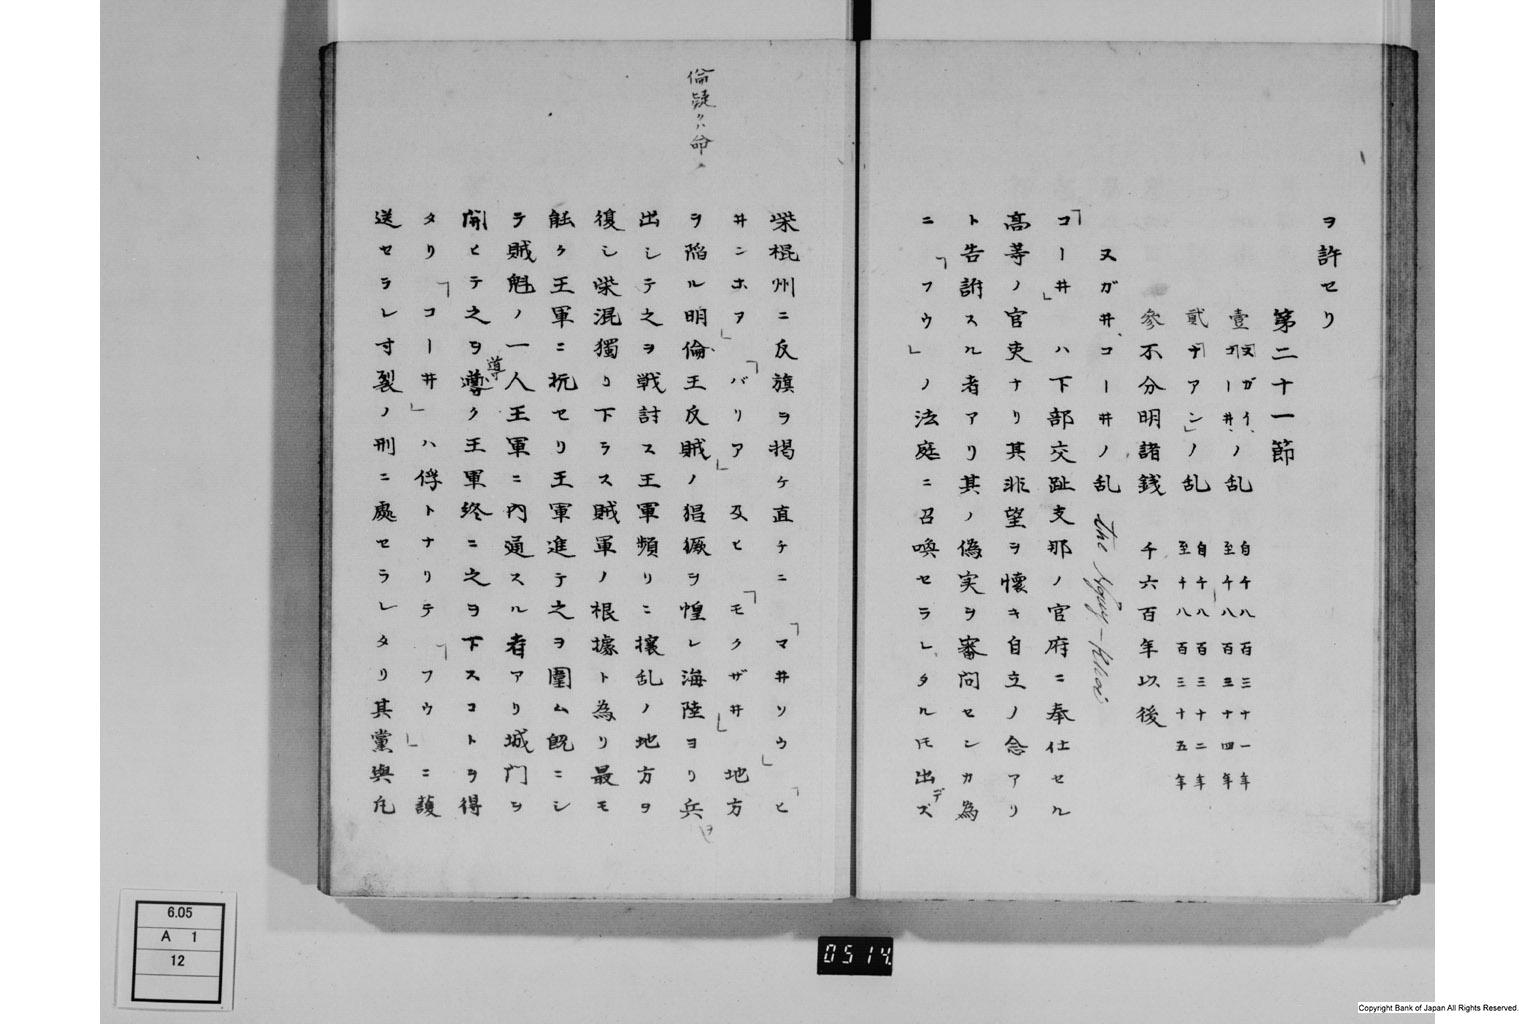 ヲ許セリ
第二十一節
壹 「ヌガイ、コーヰ」ノ乱 自千八百三十一年至千八百三十四年
貳 「ナアン」ノ乱 自千八百三十二年至千八百三十五年
参 不分明諸銭 千六百年以後
ヌガヰ、コーヰノ乱 the Nguy-Khoi
「コーヰ」ハ下部交趾支那ノ官府ニ奉仕セル
高等ノ官吏ナリ其非望ヲ懐キ自立ノ念アリ
ト告訴スル者アリ其ノ偽実ヲ審問センカ為
ニ「フウ」ノ法庭ニ召喚セラレタルモ出デズ
柴棍州ニ反旗ヲ掲ケ直チニ「マヰソウ」「ヒ
ヰンホア」「バリア」及ヒ「モクザヰ」地方
ヲ陥ル明倫王反賊ノ猖獗ヲ惶レ海陸ヨリ兵ヲ
出シテ之ヲ戦討ス王軍頻リニ攘乱ノ地方ヲ
復シ柴混獨リ下ラス賊軍ノ根據ト為リ最モ
能ク王軍ニ抗セリ王軍進テ之ヲ圍ム既ニシ
テ賊魁ノ一人王軍ニ内通スル者アリ城門ヲ
開ヒテ之ヲ導ク王軍終ニ之ヲ下スコトヲ得
タリ「コーヰ」ハ俘トナリテ「フウ」ニ護
送セラレ寸裂ノ刑ニ處セラレタリ其黨與凡
倫疑クハ命
6.05
A 1
12
0514
Copyright Bank of Japan All Rights Reserved.